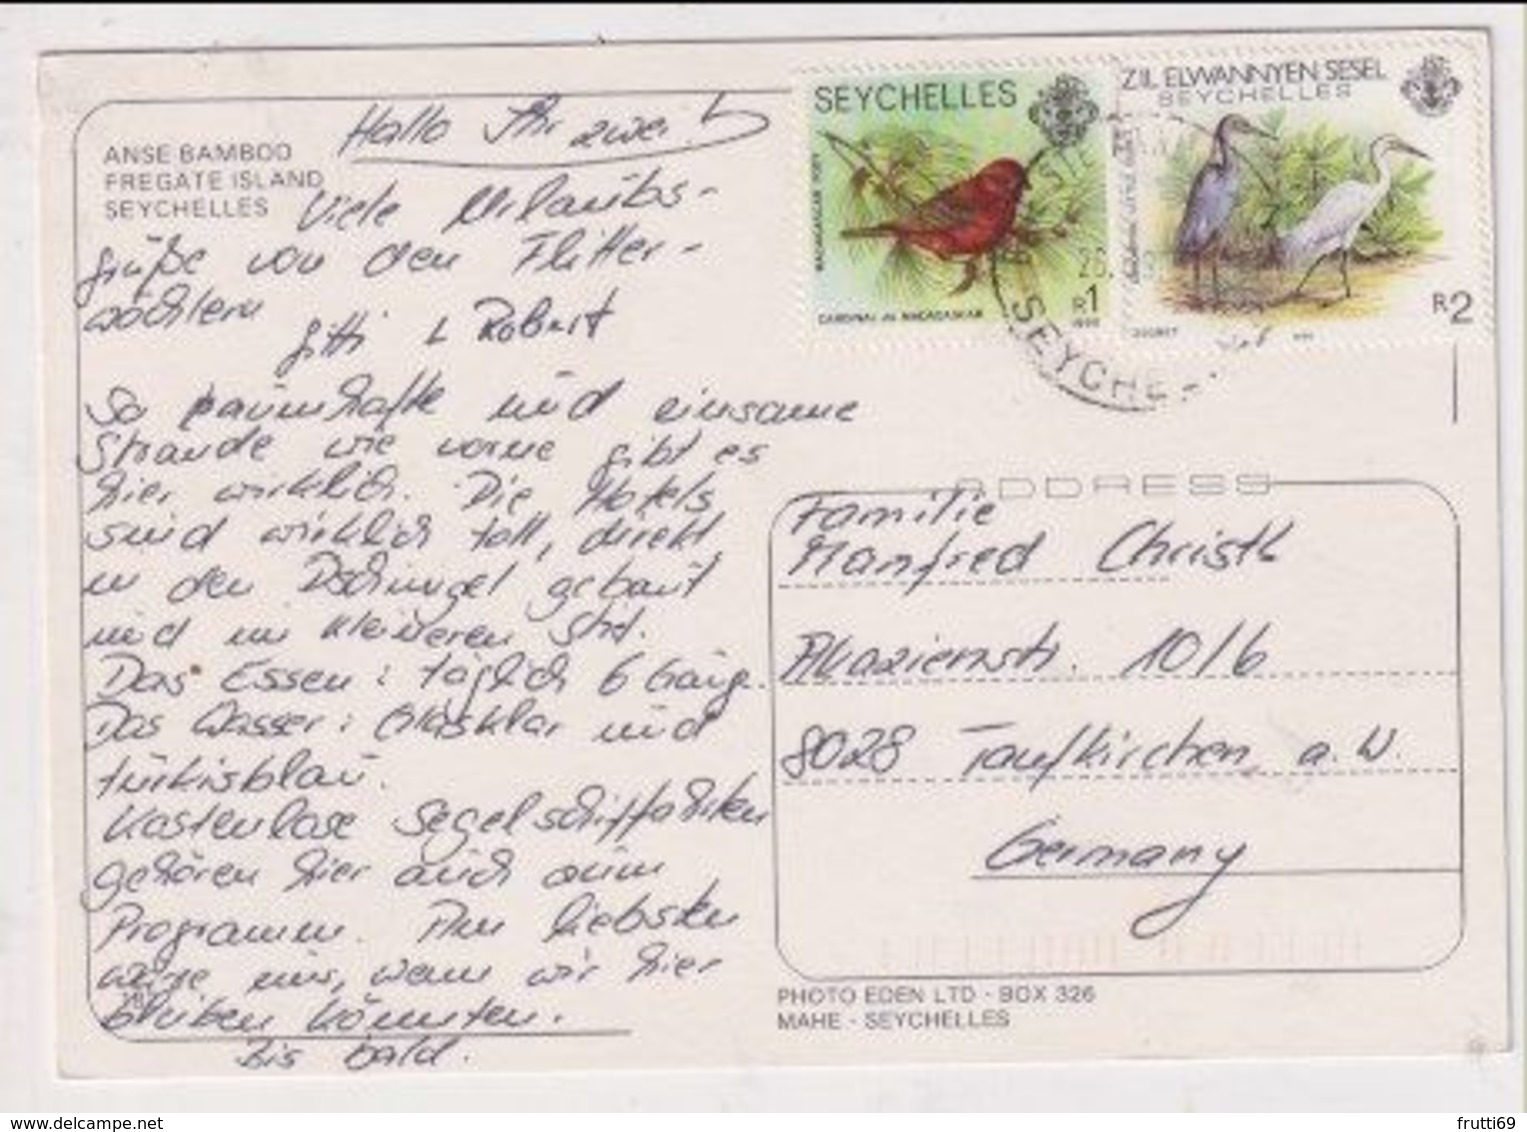 ANSE BAMBOO
FREGATE ISLAND
SEYCHELLES
Hallo Ihr zwei!
Viele Urlaubs-
grüße von den Flitter-
wöchlern
Gitti & Robert
So traumhafte und einsame
Strände wie vorne gibt es
hier wirklich. Die Hotels
sind wirklich toll, direkt
in den Dschungel gebaut
und im kleineren Stil.
Das Essen: täglich 6 Gänge.
Das Wasser: Glasklar und
türkisblau.
Kostenlose Segelschiffahrten
gehören hier auch zum
Programm. Am liebsten
wäre uns, wenn wir hier
bleiben könnten.
Bis bald.
SEYCHELLES
MADAGASCAR FODY
CARDINAL DE MADAGASCAR
R1
ZIL ELWANNYEN SESEL
SEYCHELLES
R2
SEYCHE
ADDRESS
Familie
Manfred Christl
Akazienstr. 10/6
8028 Taufkirchen a.W.
Germany
PHOTO EDEN LTD - BOX 326
MAHE - SEYCHELLES
frutti69